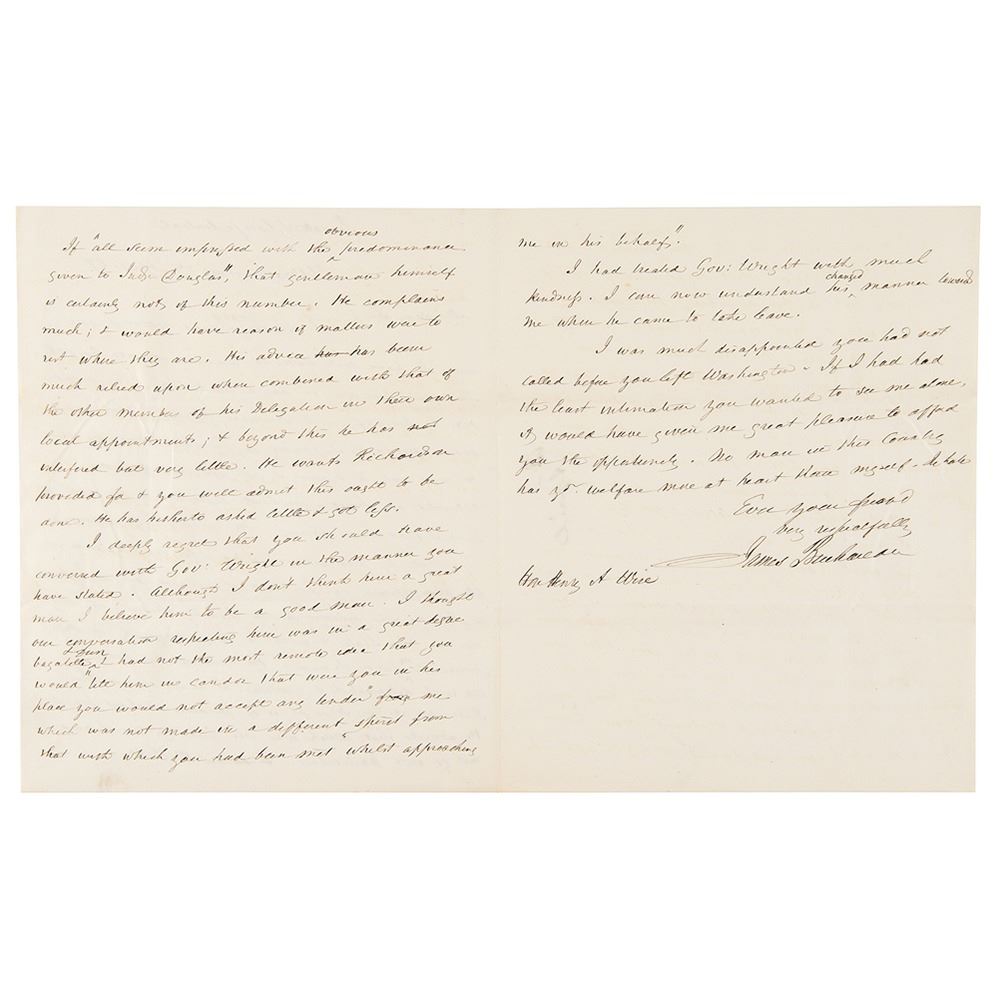 obvious
If "all seem impressed with the ^ predominance
given to Judge Douglas", that gentleman himself
is certainly not of this number. He complains
much; & would have reason if matters were to
rest where they are. His advice has has been
much relied upon when combined with that of
the other members of his Delegation in their own
local appointments; & beyond this he has not
interfered but very little. He wants Richardson
provided for & you will admit this ought to be
done. He has hitherto asked little & got less.
I deeply regret that you should have
conversed with Gov: Wright in the manner you
have stated. Although I don't think him a great
man I believe him to be a good man. I thought
our conversation respecting him was in a great degree
bagatelle ^ I had not the most remote idea that you
would "tell him in candor that were you in his
place you would not accept any tender" from me
which was not made in a different ^ spirit from
that with which you had been met whilst approaching
me in his behalf".
I had treated Gov: Wright with much
changed
kindness. I can now understand his ^ manner toward
me when he came to take leave.
I was much disappointed you had not
called before you left Washington. If I had had
the least intimation you wanted to see me alone,
it would have given me great pleasure to afford
you the opportunity. No man in this Country
has yr. welfare more at heart than myself.
Ever your friend
very respectfully
James Buchanan
Hon: Henry A Wise